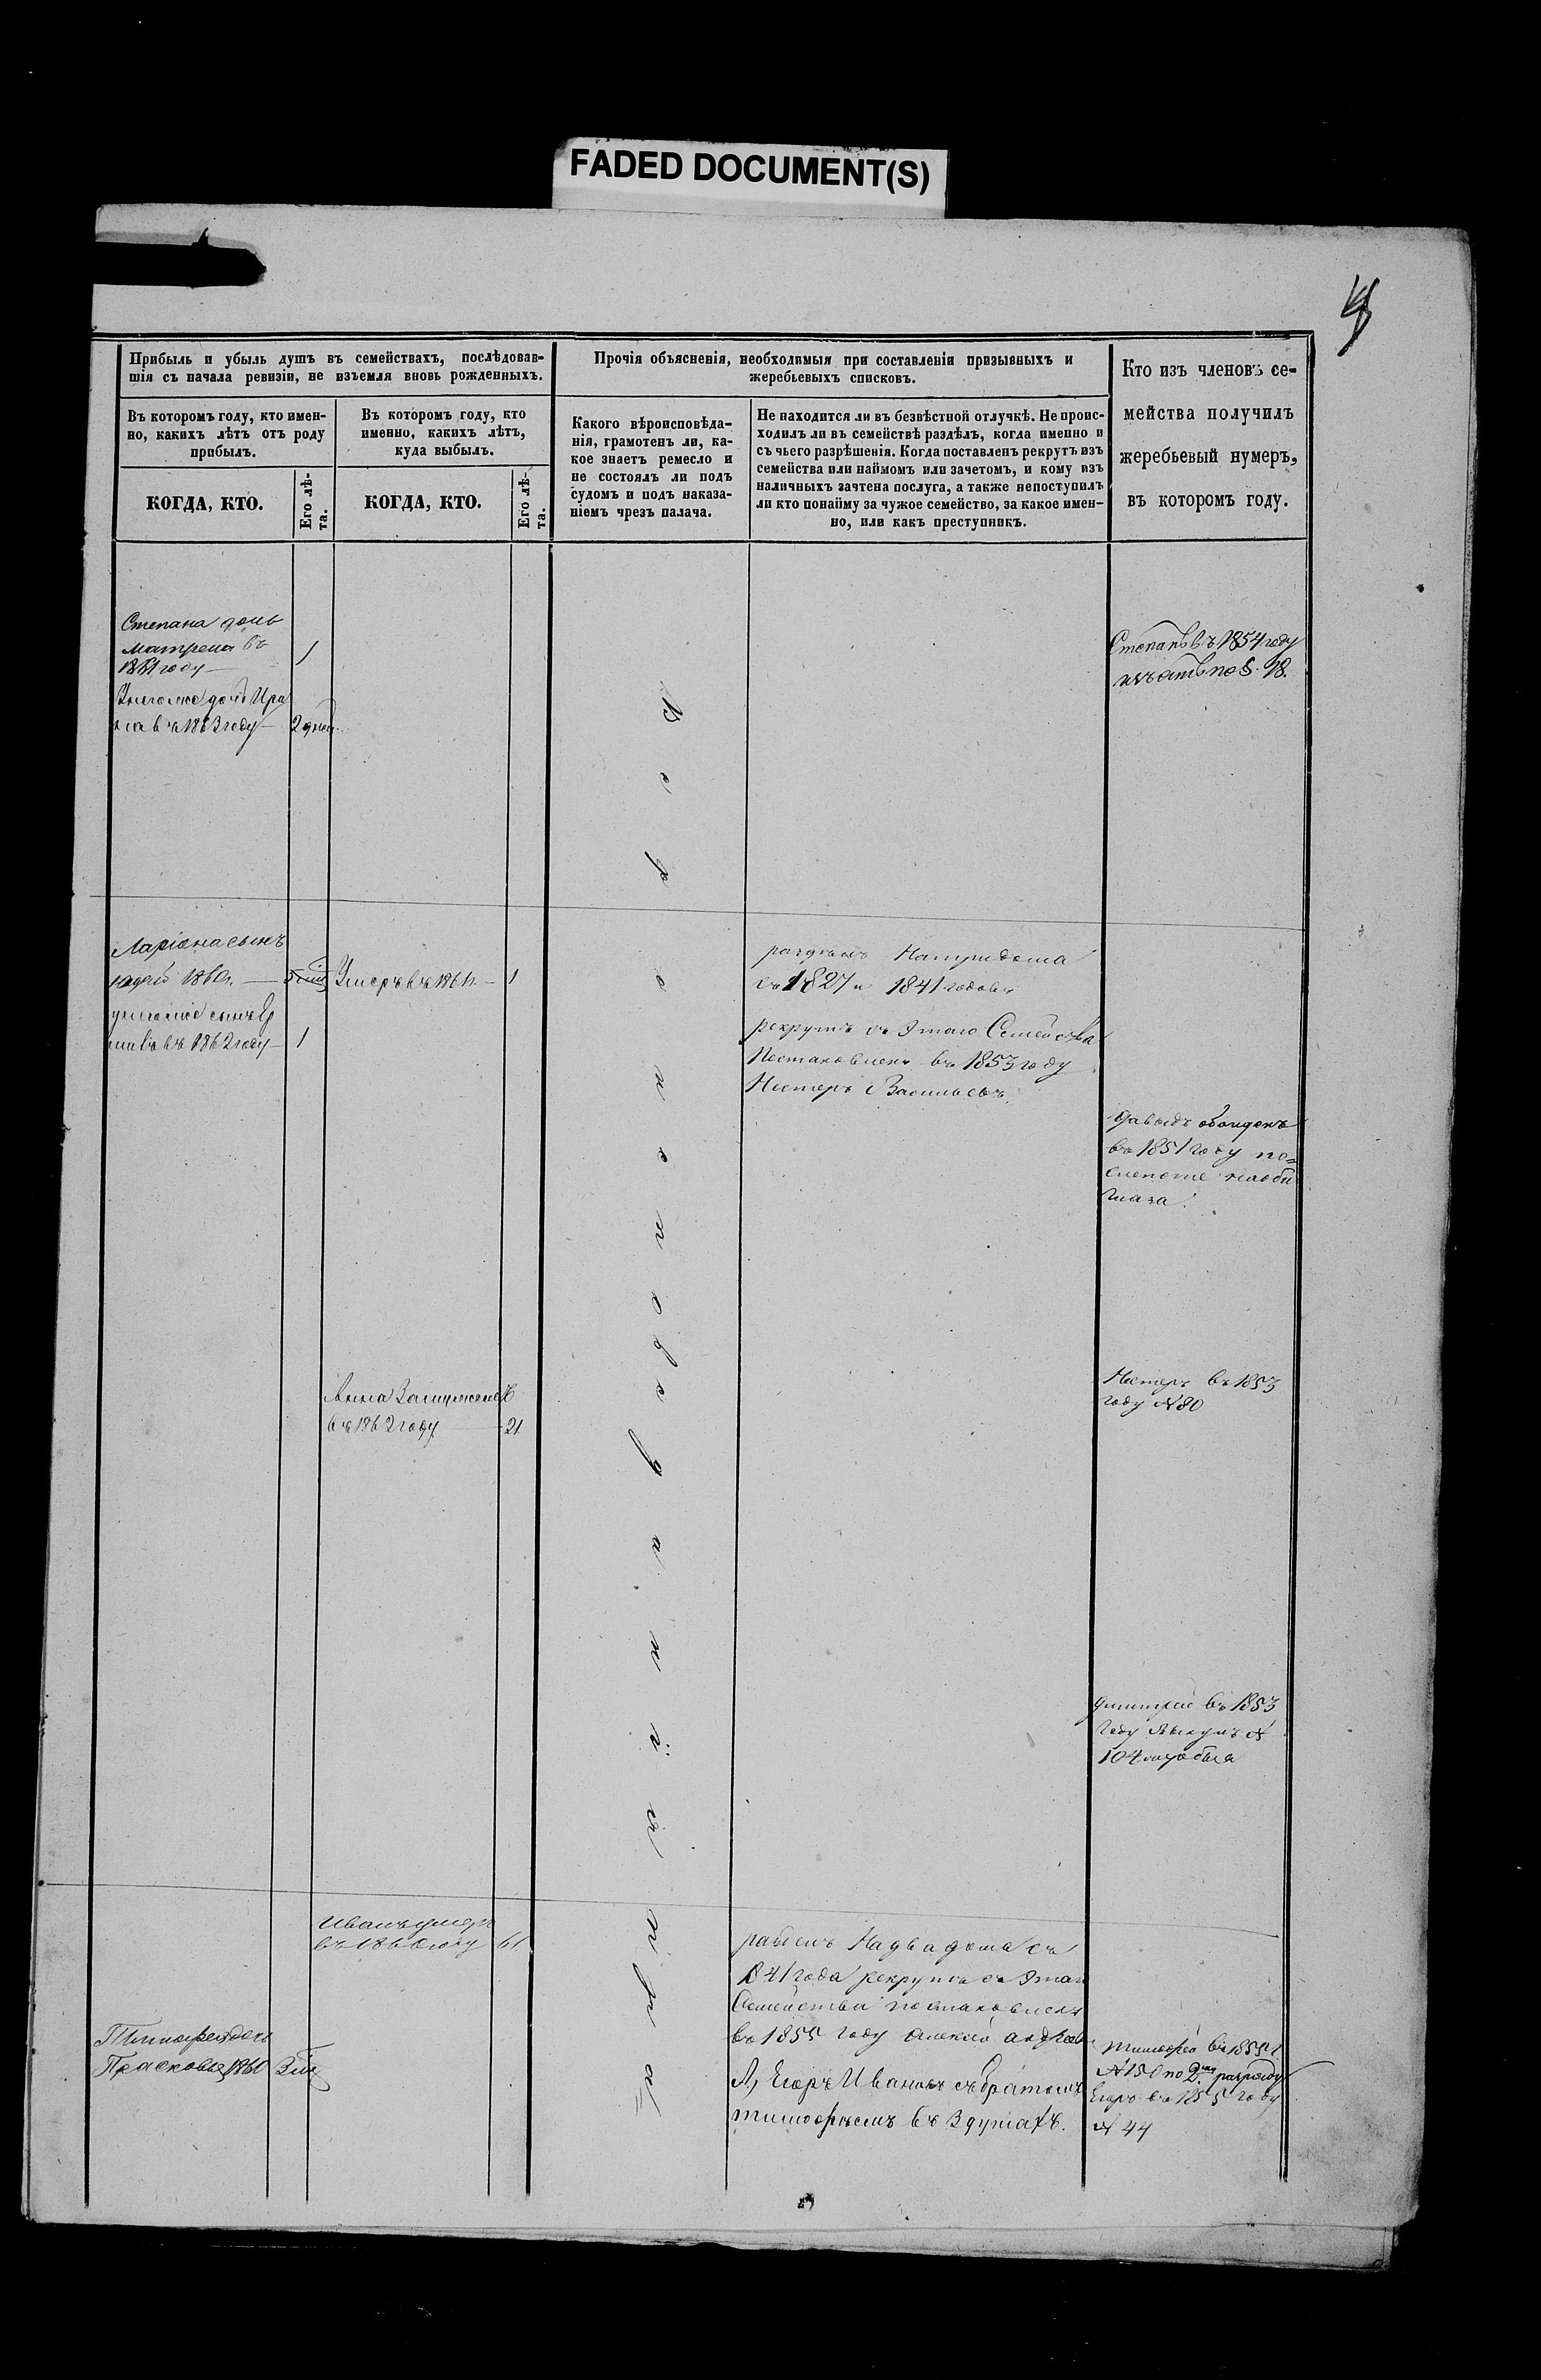 FADED DOCUMENT(S)
Прибыль и убыль душъ въ семействахъ, послѣдовав-
шія съ начала ревизіи, не изъемля вновь рожденныхъ.
Въ которомъ году, кто имен-
но, какихъ лѣтъ отъ роду
прибылъ.
КОГДА, КТО.
Его лѣ-
та.
Въ которомъ году, кто
именно, какихъ лѣтъ,
куда выбылъ.
КОГДА, КТО.
Его лѣ-
та.
Прочія объясненія, необходимыя при составленіи призывныхъ и
жеребьевыхъ списковъ.
Какого вѣроисповѣда-
нія, грамотенъ ли, ка-
кое знаетъ ремесло и
не состоялъ ли подъ
судомъ и подъ наказа-
ніемъ чрезъ палача.
Не находится ли въ безвѣстной отлучкѣ. Не проис-
ходилъ ли въ семействѣ раздѣлъ, когда именно и
съ чьего разрѣшенія. Когда поставленъ рекрутъ изъ
семейства или наймомъ или зачетомъ, и кому изъ
наличныхъ зачтена послуга, а также непоступилъ
ли кто понайму за чужое семейство, за какое имен-
но, или какъ преступникъ.
Кто изъ членовъ се-
мейства получилъ
жеребьевый нумеръ,
въ которомъ году.
Степана дочь
Матрена въ
1861 году 1
въ 1863 году 2 дней
Степанъ въ 1854 году
18.
Ларіона сынъ
Умеръ въ 1861 г. 1
въ 1862 году 1
раздѣлъ На три дома
съ 1827 и 1841 годовъ
рекрутъ съ Этаго Семейства
Поставленъ въ 1853 году
Нестеръ Васильевъ
Давыдъ обойденъ
въ 1851 году по
слепоте
глаза
Анна Замужемъ
въ 1862 году 21
Нестеръ въ 1853
году № 80
Дмитрий въ 1853
году №
104
Иванъ умеръ
въ 1860 году 61
Тимофея дочь
Прасковья 1860
раздѣлъ На два дома съ
1841 года рекрутъ съ Этаго
Семейства поставленъ
въ 1855 году Алексей
А, Егоръ Ивановъ съ братомъ
Тимофеемъ въ 3 душахъ.
Тимофей въ 1855 г.
№ 150 по 2 разряду
Егоръ въ 1855 году
№ 44